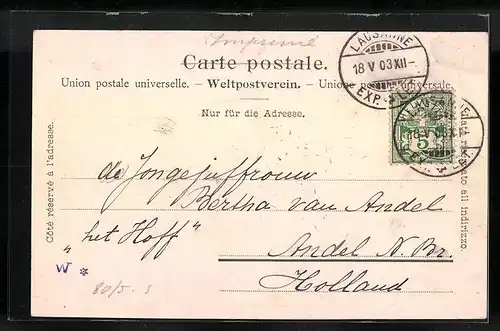 Imprimé
Carte postale.
Union postale universelle. – Weltpostverein. – Unione postale universale.
Nur für die Adresse.
LAUSANNE
18 V 03 XII –
EXP. LE
LAUSANNE
18 V 03 XII
5
Côté réservé à l'adresse.
Lato riservato all indirizzo.
de Jongejuffrouw
Bertha van Andel
"het Hoff"
Andel N. Br.
Holland
W *
80/5-s